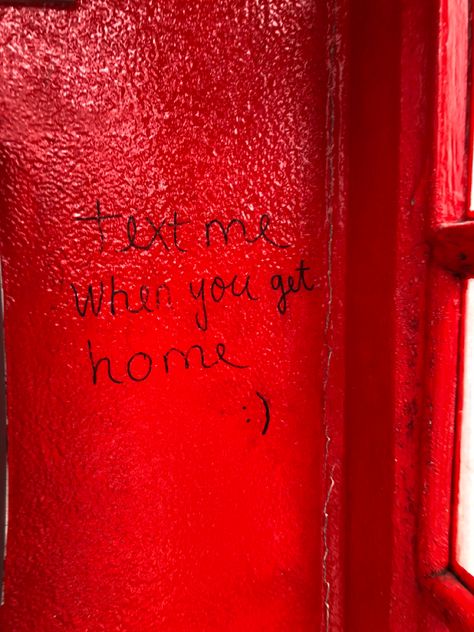 text me
when you get
home
:)